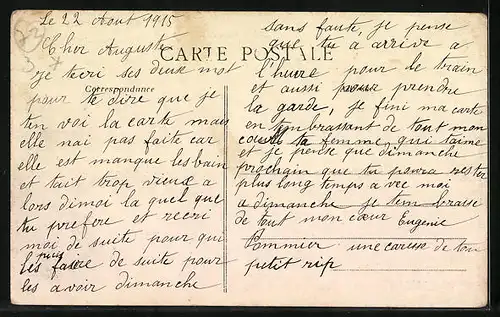 Le 22 Aout 1915
Cher Auguste
CARTE POSTALE
Correspondance
je tecri ses deux mot
pour te dire que je
ten voi la carte mais
elle nai pas faite car
elle est manque les bain
et tait trop vieux a
lors dimoi la quel que
tu prefere et recri
moi de suite pour qui
puis
les faire de suite pour
les avoir dimanche
sans faute, je pense
que tu a arrive a
l'heure pour le train
et aussi pour prendre
la garde, je fini ma carte
en tembrassant de tout mon
cœur ta femme qui taime
et je pense que dimanche
prochain que tu poura rester
plus long temps avec moi
a dimanche je tembrasse
de tout mon cœur Eugenie
Pommier une caresse de ton
petit rip